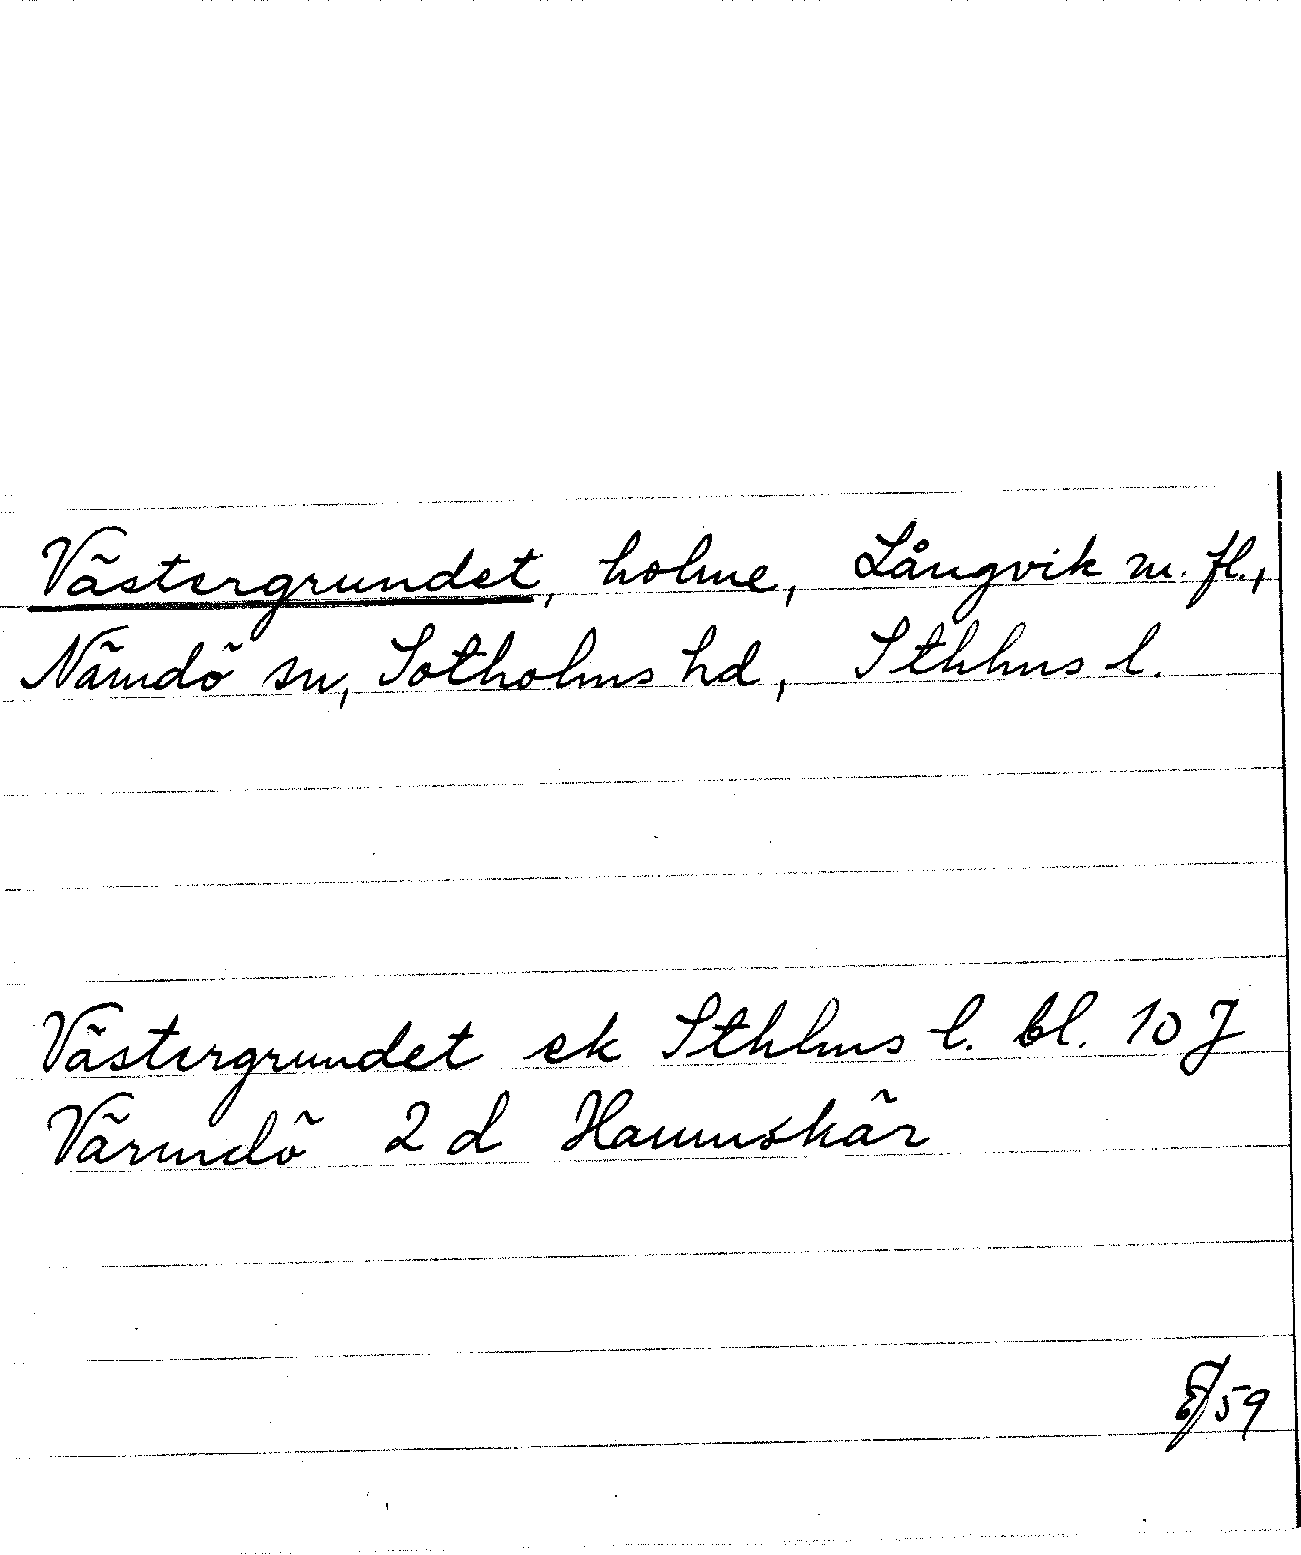 Västergrundet, holme, Långvik m. fl.,
Nämdö sn, Sotholms hd, Sthlms l.
Västergrundet ek Sthlms l. bl. 10 J
Värmdö 2 d Hamnskär
59